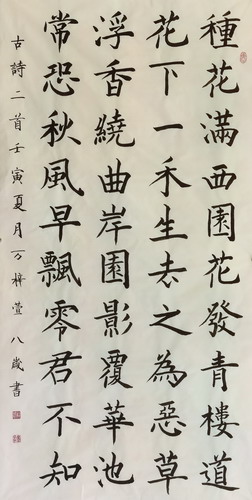 種花滿西園花發青樓道
花下一禾生去之為惡草
浮香繞曲岸園影覆華池
常恐秋風早飄零君不知
古詩二首壬寅夏月万梓萱八歲書